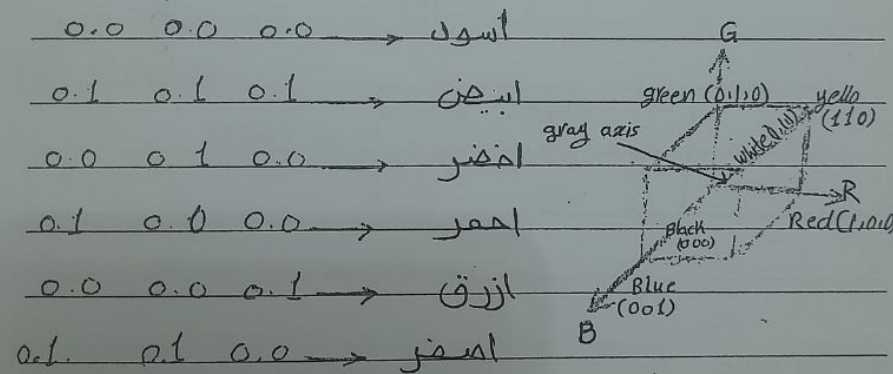 0.0 0.0 0.0 → اسود
0.1 0.1 0.1 → ابيض
0.0 0.1 0.0 → اخضر
0.1 0.0 0.0 → احمر
0.0 0.0 0.1 → ازرق
0.1. 0.1 0.0 → اصفر
G
green (0,1,0)
yello
(110)
gray axis
white(1,1,1)
R
Red(1,0,0)
Black
(000)
Blue
(001)
B